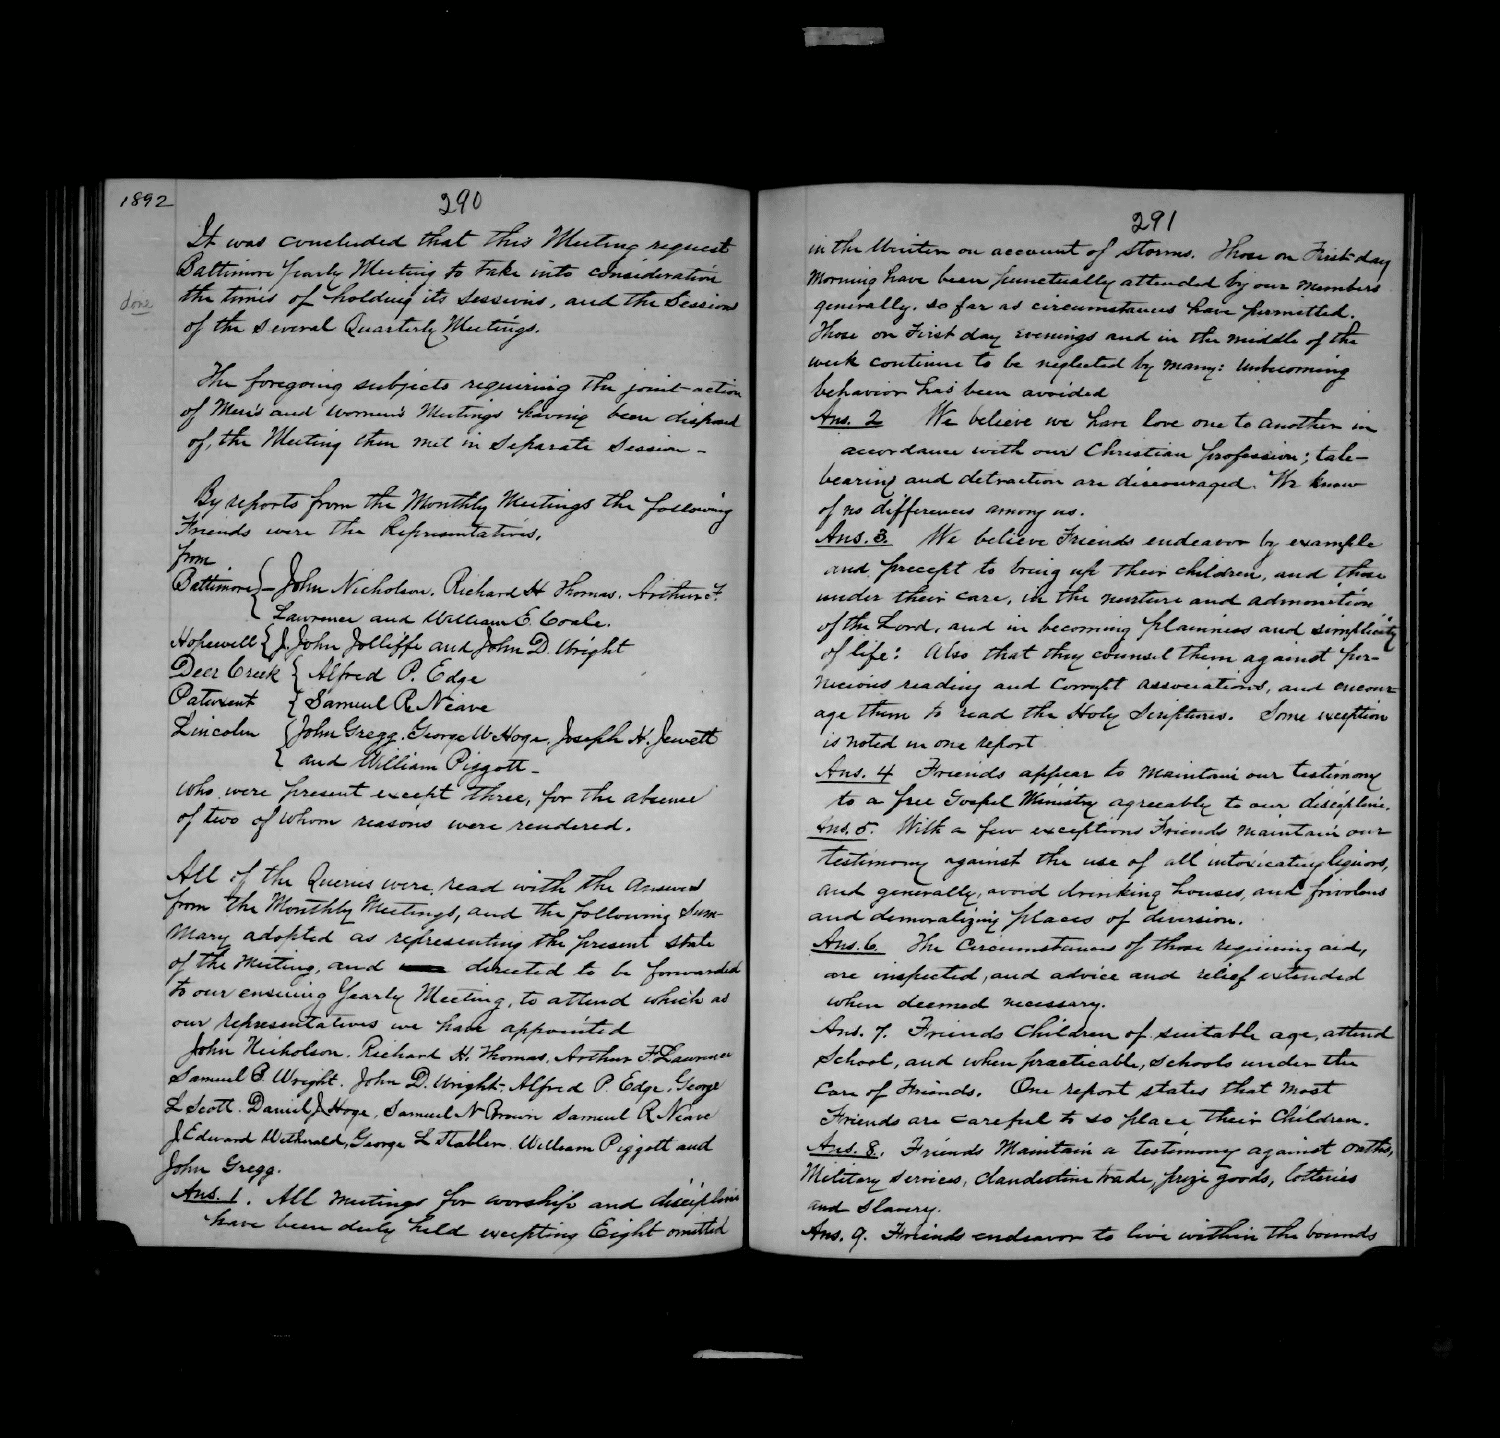 1892
290
It was concluded that this Meeting request
Baltimore Yearly Meeting to take into consideration
done
the times of holding its sessions, and the Sessions
of the several Quarterly Meetings.
The foregoing subjects requiring the joint action
of Men's and Women's Meetings having been disposed
of, the Meeting then met in separate session -
By reports from the Monthly Meetings the following
Friends were the Representatives,
from
Baltimore { John Nicholson. Richard H Thomas. Arthur F.
Lawrence and William E. Coale.
Hopewell { J. John Jolliffe and John D. Wright
Deer Creek { Alfred P. Edge
Patuxent { Samuel R Neave
Lincoln { John Gregg. George W Hoge, Joseph H. Jewett
{ and William Piggott -
who were present except three, for the absence
of two of whom reasons were rendered.
All of the Queries were read with the answers
from the Monthly Meetings, and the following Sum-
mary adopted as representing the present state
of the Meeting, and directed to be forwarded
to our ensuing Yearly Meeting, to attend which as
our representatives we have appointed
John Nicholson. Richard H. Thomas, Arthur F. Lawrence
Samuel B. Wright. John D. Wright - Alfred P. Edge. George
L Scott. Daniel J Hoge, Samuel N Brown Samuel R Neave
J Edward Witherald, George L Stabler. William Piggott and
John Gregg.
Ans. 1. All meetings for worship and discipline
have been duly held excepting Eight omitted
291
in the Winter on account of storms. Those on First-day
Morning have been punctually attended by our members
generally, so far as circumstances have permitted.
Those on First day evenings and in the middle of the
week continue to be neglected by many: unbecoming
behavior has been avoided
Ans. 2 We believe we have love one to another in
accordance with our Christian profession; tale-
bearing and detraction are discouraged. We know
of no differences among us.
Ans. 3. We believe Friends endeavor by example
and precept to bring up their children, and those
under their care, in the nurture and admonition
of the Lord, and in becoming plainness and simplicity
of life: Also that they counsel them against per-
nicious reading and corrupt associations, and encour-
age them to read the Holy Scriptures. Some exception
is noted in one report
Ans. 4 Friends appear to maintain our testimony
to a free Gospel Ministry agreeably to our discipline.
Ans. 5. With a few exceptions Friends maintain our
testimony against the use of all intoxicating liquors,
and generally, avoid drinking houses, and frivolous
and demoralizing places of diversion.
Ans. 6 The circumstances of those requiring aid,
are inspected, and advice and relief extended
when deemed necessary.
Ans. 7. Friends Children of suitable age, attend
School, and when practicable, schools under the
care of Friends. One report states that most
Friends are careful to so place their Children.
Ans. 8. Friends Maintain a testimony against oaths,
Military services, clandestine trade, prize goods, lotteries
and slavery.
Ans. 9. Friends endeavor to live within the bounds